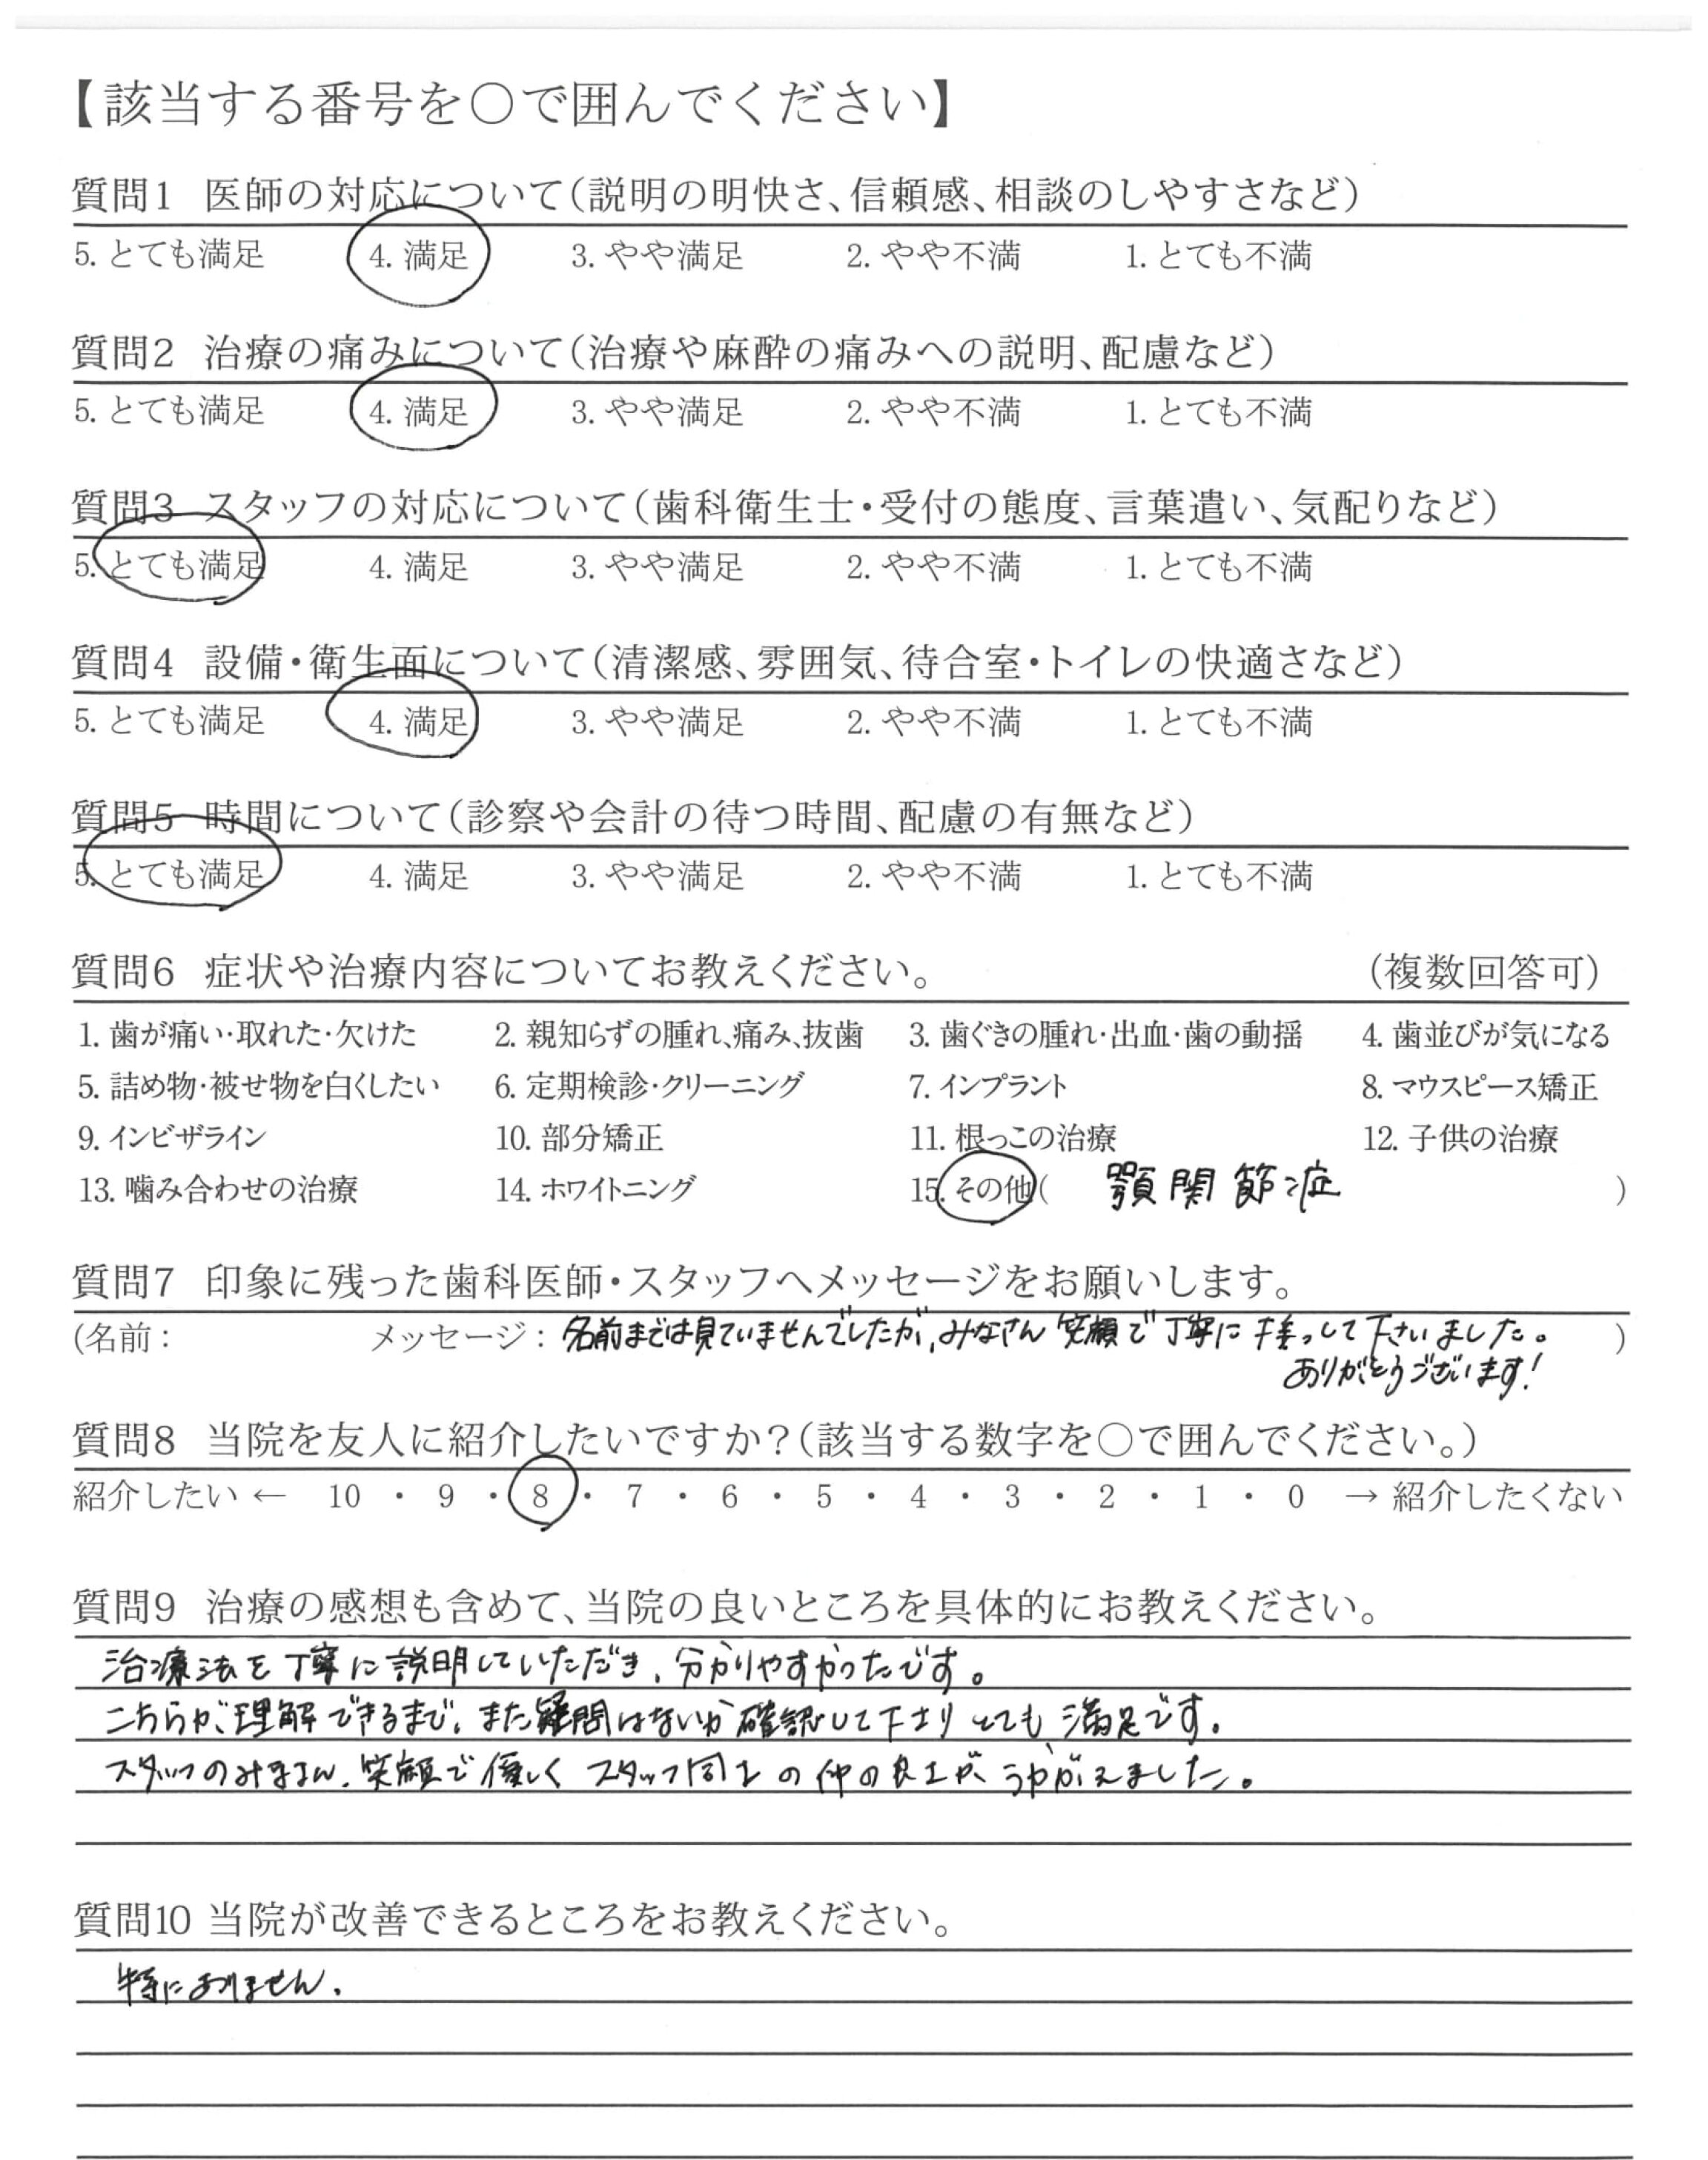 【該当する番号を○で囲んでください】
質問1 医師の対応について（説明の明快さ、信頼感、相談のしやすさなど）
5. とても満足 4. 満足 3. やや満足 2. やや不満 1. とても不満
質問2 治療の痛みについて（治療や麻酔の痛みへの説明、配慮など）
5. とても満足 4. 満足 3. やや満足 2. やや不満 1. とても不満
質問3 スタッフの対応について（歯科衛生士・受付の態度、言葉遣い、気配りなど）
5. とても満足 4. 満足 3. やや満足 2. やや不満 1. とても不満
質問4 設備・衛生面について（清潔感、雰囲気、待合室・トイレの快適さなど）
5. とても満足 4. 満足 3. やや満足 2. やや不満 1. とても不満
質問5 時間について（診察や会計の待つ時間、配慮の有無など）
5. とても満足 4. 満足 3. やや満足 2. やや不満 1. とても不満
質問6 症状や治療内容についてお教えください。 （複数回答可）
1. 歯が痛い・取れた・欠けた 2. 親知らずの腫れ、痛み、抜歯 3. 歯ぐきの腫れ・出血・歯の動揺 4. 歯並びが気になる
5. 詰め物・被せ物を白くしたい 6. 定期検診・クリーニング 7. インプラント 8. マウスピース矯正
9. インビザライン 10. 部分矯正 11. 根っこの治療 12. 子供の治療
13. 噛み合わせの治療 14. ホワイトニング 15. その他( 顎関節症 )
質問7 印象に残った歯科医師・スタッフへメッセージをお願いします。
(名前： メッセージ：名前までは見ていませんでしたが、みなさん笑顔で丁寧に接して下さいました。 )
ありがとうございます!
質問8 当院を友人に紹介したいですか？（該当する数字を○で囲んでください。）
紹介したい ← 10 ・ 9 ・ 8 ・ 7 ・ 6 ・ 5 ・ 4 ・ 3 ・ 2 ・ 1 ・ 0 → 紹介したくない
質問9 治療の感想も含めて、当院の良いところを具体的にお教えください。
治療法を丁寧に説明していただき、分かりやすかったです。
こちらが、理解できるまで、また疑問はないか確認して下さり とても満足です。
スタッフのみなさん、笑顔で優しく スタッフ同士の仲の良さが うかがえました。
質問10 当院が改善できるところをお教えください。
特にありません。